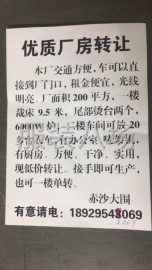 优质厂房转让
本厂交通方便，车可以直
接到厂门口，租金便宜，光线
明亮。厂面积 200 平方，一楼
裁床 9.5 米，尾部烫台两个，
6000
楼车间可放 20
有办公室
有厨房。方便、干净、实用，
现低价转让。接手即可生产，
也可一楼单转。
赤沙大围
有意请电：18929548069
8069